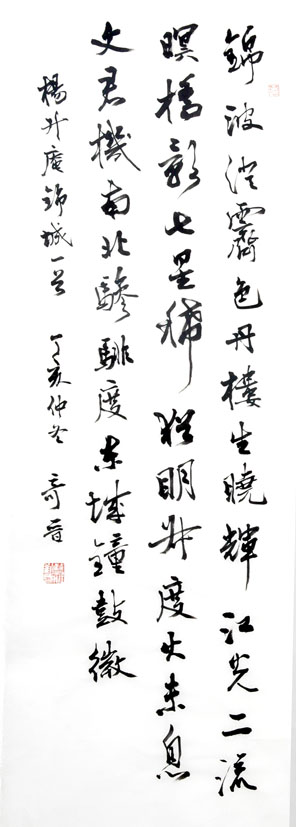 錦波澄霽色丹樓生曉輝江光二流
暝橋影七星稀猶明叔度火未息
文君機南北驂騑度東城鐘鼓微
楊升庵錦城一首 丁亥仲冬 奇晉